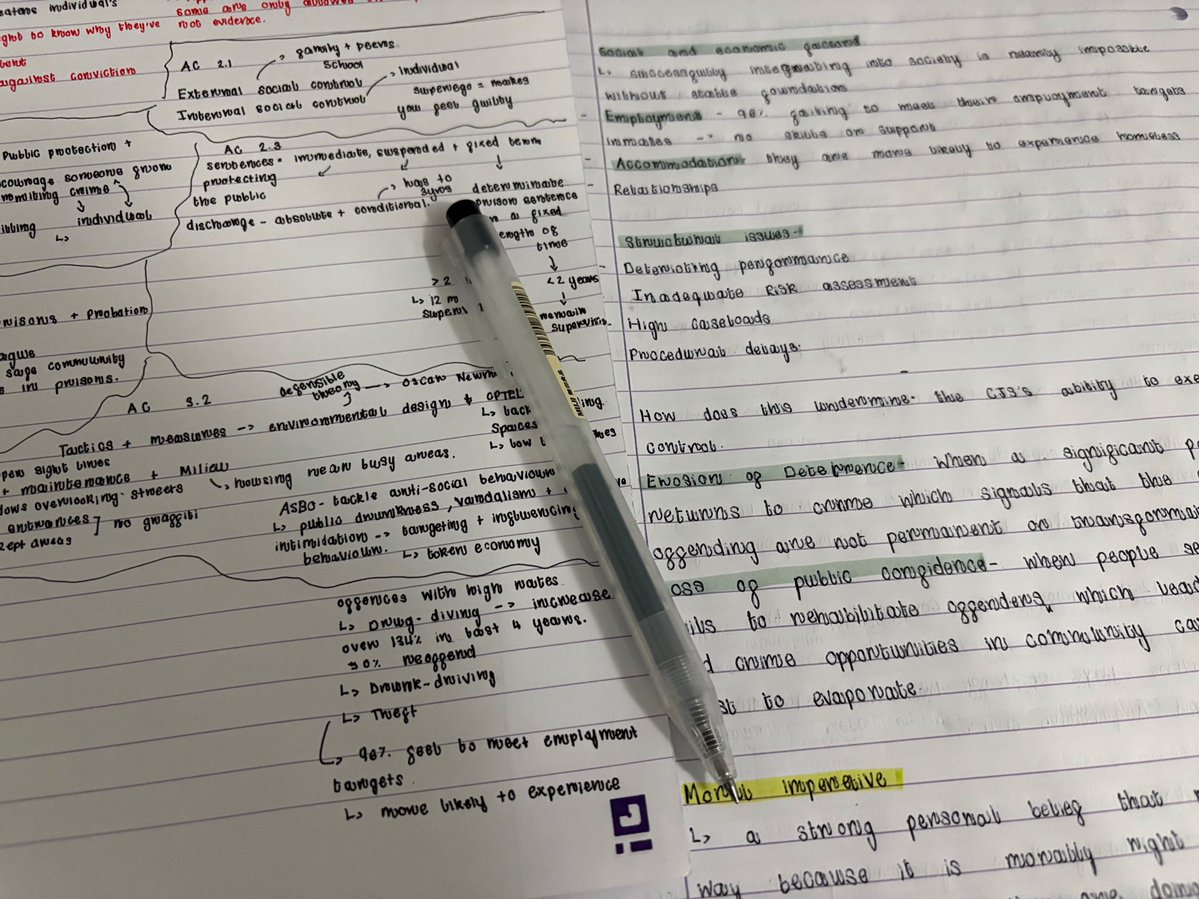 individual's
right to know why they've not evidence.
against conviction
AC 2.1
family + peers
school
External social control
individual
Internal social control
superego = makes
you feel guilty
Public protection +
individual
AC 2.3
sentences = immediate, suspended + fixed term
protecting
the public
has to
discharge - absolute + conditional.
determinate
prison sentence
fixed
length of
time
> 2
< 2 years
L> 12 m
remain
supervis
prisons + Probation
safe community
in prisons.
AC 3.2
defensible
theory -> Oscar Newm
Tactics + measures -> environmental design & CPTED
L> back
spaces
L> low
sight lines
+ maintenance + Miliew
L> housing near busy areas.
overlooking streets
entrances
no graffiti
kept areas
ASBO - tackle anti-social behaviour
L> public drunkness, vandalism +
intimidation -> targeting + influencing
behaviour. L> token economy
offences with high rates
L> Drug-diving -> increase
over 134% in last 4 years.
30% reoffend
L> Drunk-driving
L> Theft
L> 98% feel to meet emplyment
targets.
L> more likely to experience
Social and economic factors
L> successfully integrating into society is nearly impossible
without stable foundation
- Employment - 98% failing to meet their employment targets
inmates -> no skills or support
- Accommodation - they are more likely to experience homeless
- Relationships
Structural issues -
- Deterioting performance
Inadequate Risk assessment
High caseloads
Procedural delays.
How does this undermine the CJS's ability to
control.
Erosion of Deterrence - When a significant
returns to crime which signals that the
offending are not permanent or
oss of public confidence - when people
ils to rehabilitate offenders, which
crime opportunities in community
to evaporate.
Moral imperetive
L> a strong personal belief that
way because it is morally right